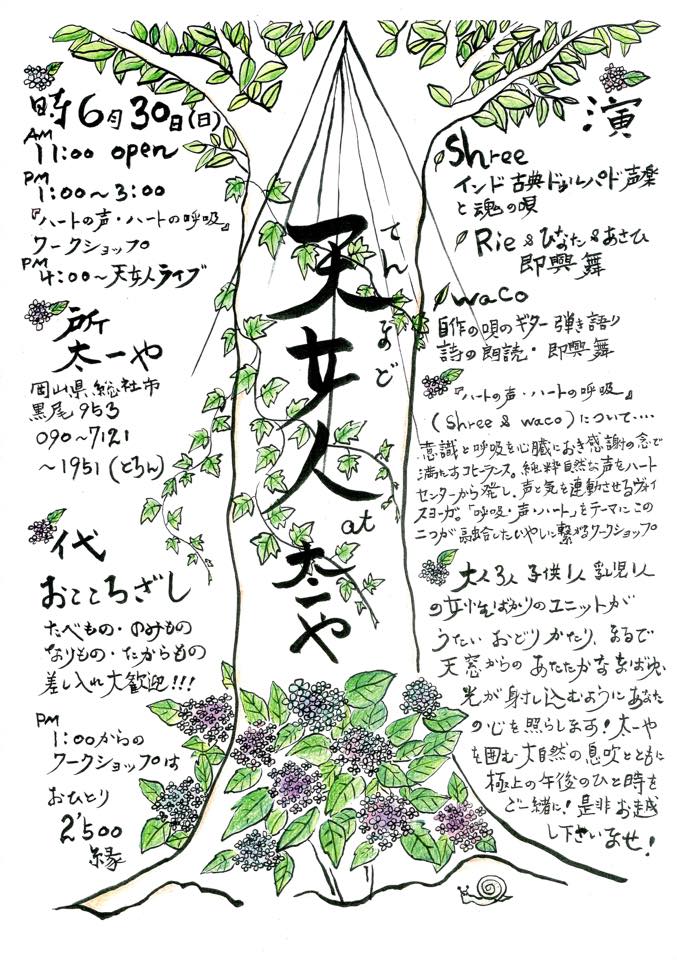 時 6月30日(日)
AM
11:00 open
PM
1:00〜3:00
『ハートの声・ハートの呼吸』
ワークショップ
PM
4:00〜天女人ライブ
所
太一や
岡山県総社市
黒尾953
090〜7121
〜1951(とろん)
代
おこころざし
たべもの・のみもの
なりもの・たからもの
差し入れ大歓迎!!!
PM
1:00からの
ワークショップは
おひとり
2'500
縁
天女人
てん
まど
at
太一や
演
Shree
インド古典ドゥルパド声楽
と魂の唄
Rie & ひなた & あさひ
即興舞
waco
自作の唄のギター弾き語り
詩の朗読・即興舞
『ハートの声・ハートの呼吸』
(Shree & waco)について‥‥
意識と呼吸を心臓におき感謝の念で
満たすコヒーランス。純粋自然な声をハート
センターから発し、声と気を連動させるヴォイ
スヨーガ。「呼吸・声・ハート」をテーマにこの
二つが融合したいやしに繋がるワークショップ
大人3人 子供1人 乳児1人
の女性ばかりのユニットが
うたい おどり かたり、まるで
天窓からの あたたかなまばゆい
光が射し込むようにあなた
の心を照らします!太一や
を囲む大自然の息吹とともに
極上の午後のひと時を
ご一緒に!是非お越
し下さいませ!